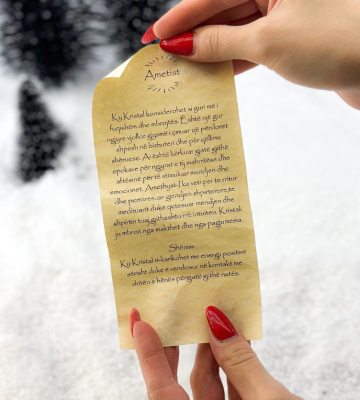 Ametist
Ky Kristal konsiderohet si guri më i
fuqishëm dhe mbrojtës. Është një gur
ngjyrë vjollce gjysmë i çmuar që përdoret
shpesh në bizhuteri dhe për qëllime
shëruese. Ai është kërkuar gjatë gjithë
epokave për ngjyrat e tij mahnitëse dhe
aftësinë për të stimuluar mendjen dhe
emocionet. Amethyst-i ka veti për të rritur
dhe përmirësuar gjendjen shpirtërore, të
medituarit duke qetësuar mendjen dhe
shpirtin tuaj, gjithashtu rrit imunitetin. Kristali
ju mbron nga makthet dhe nga pagjumësia.
Shënim:
Ky Kristal ri-karikohet me energji pozitive
sërish duke e vendosur në kontakt me
dritën e hënës përgjatë gjithë natës.